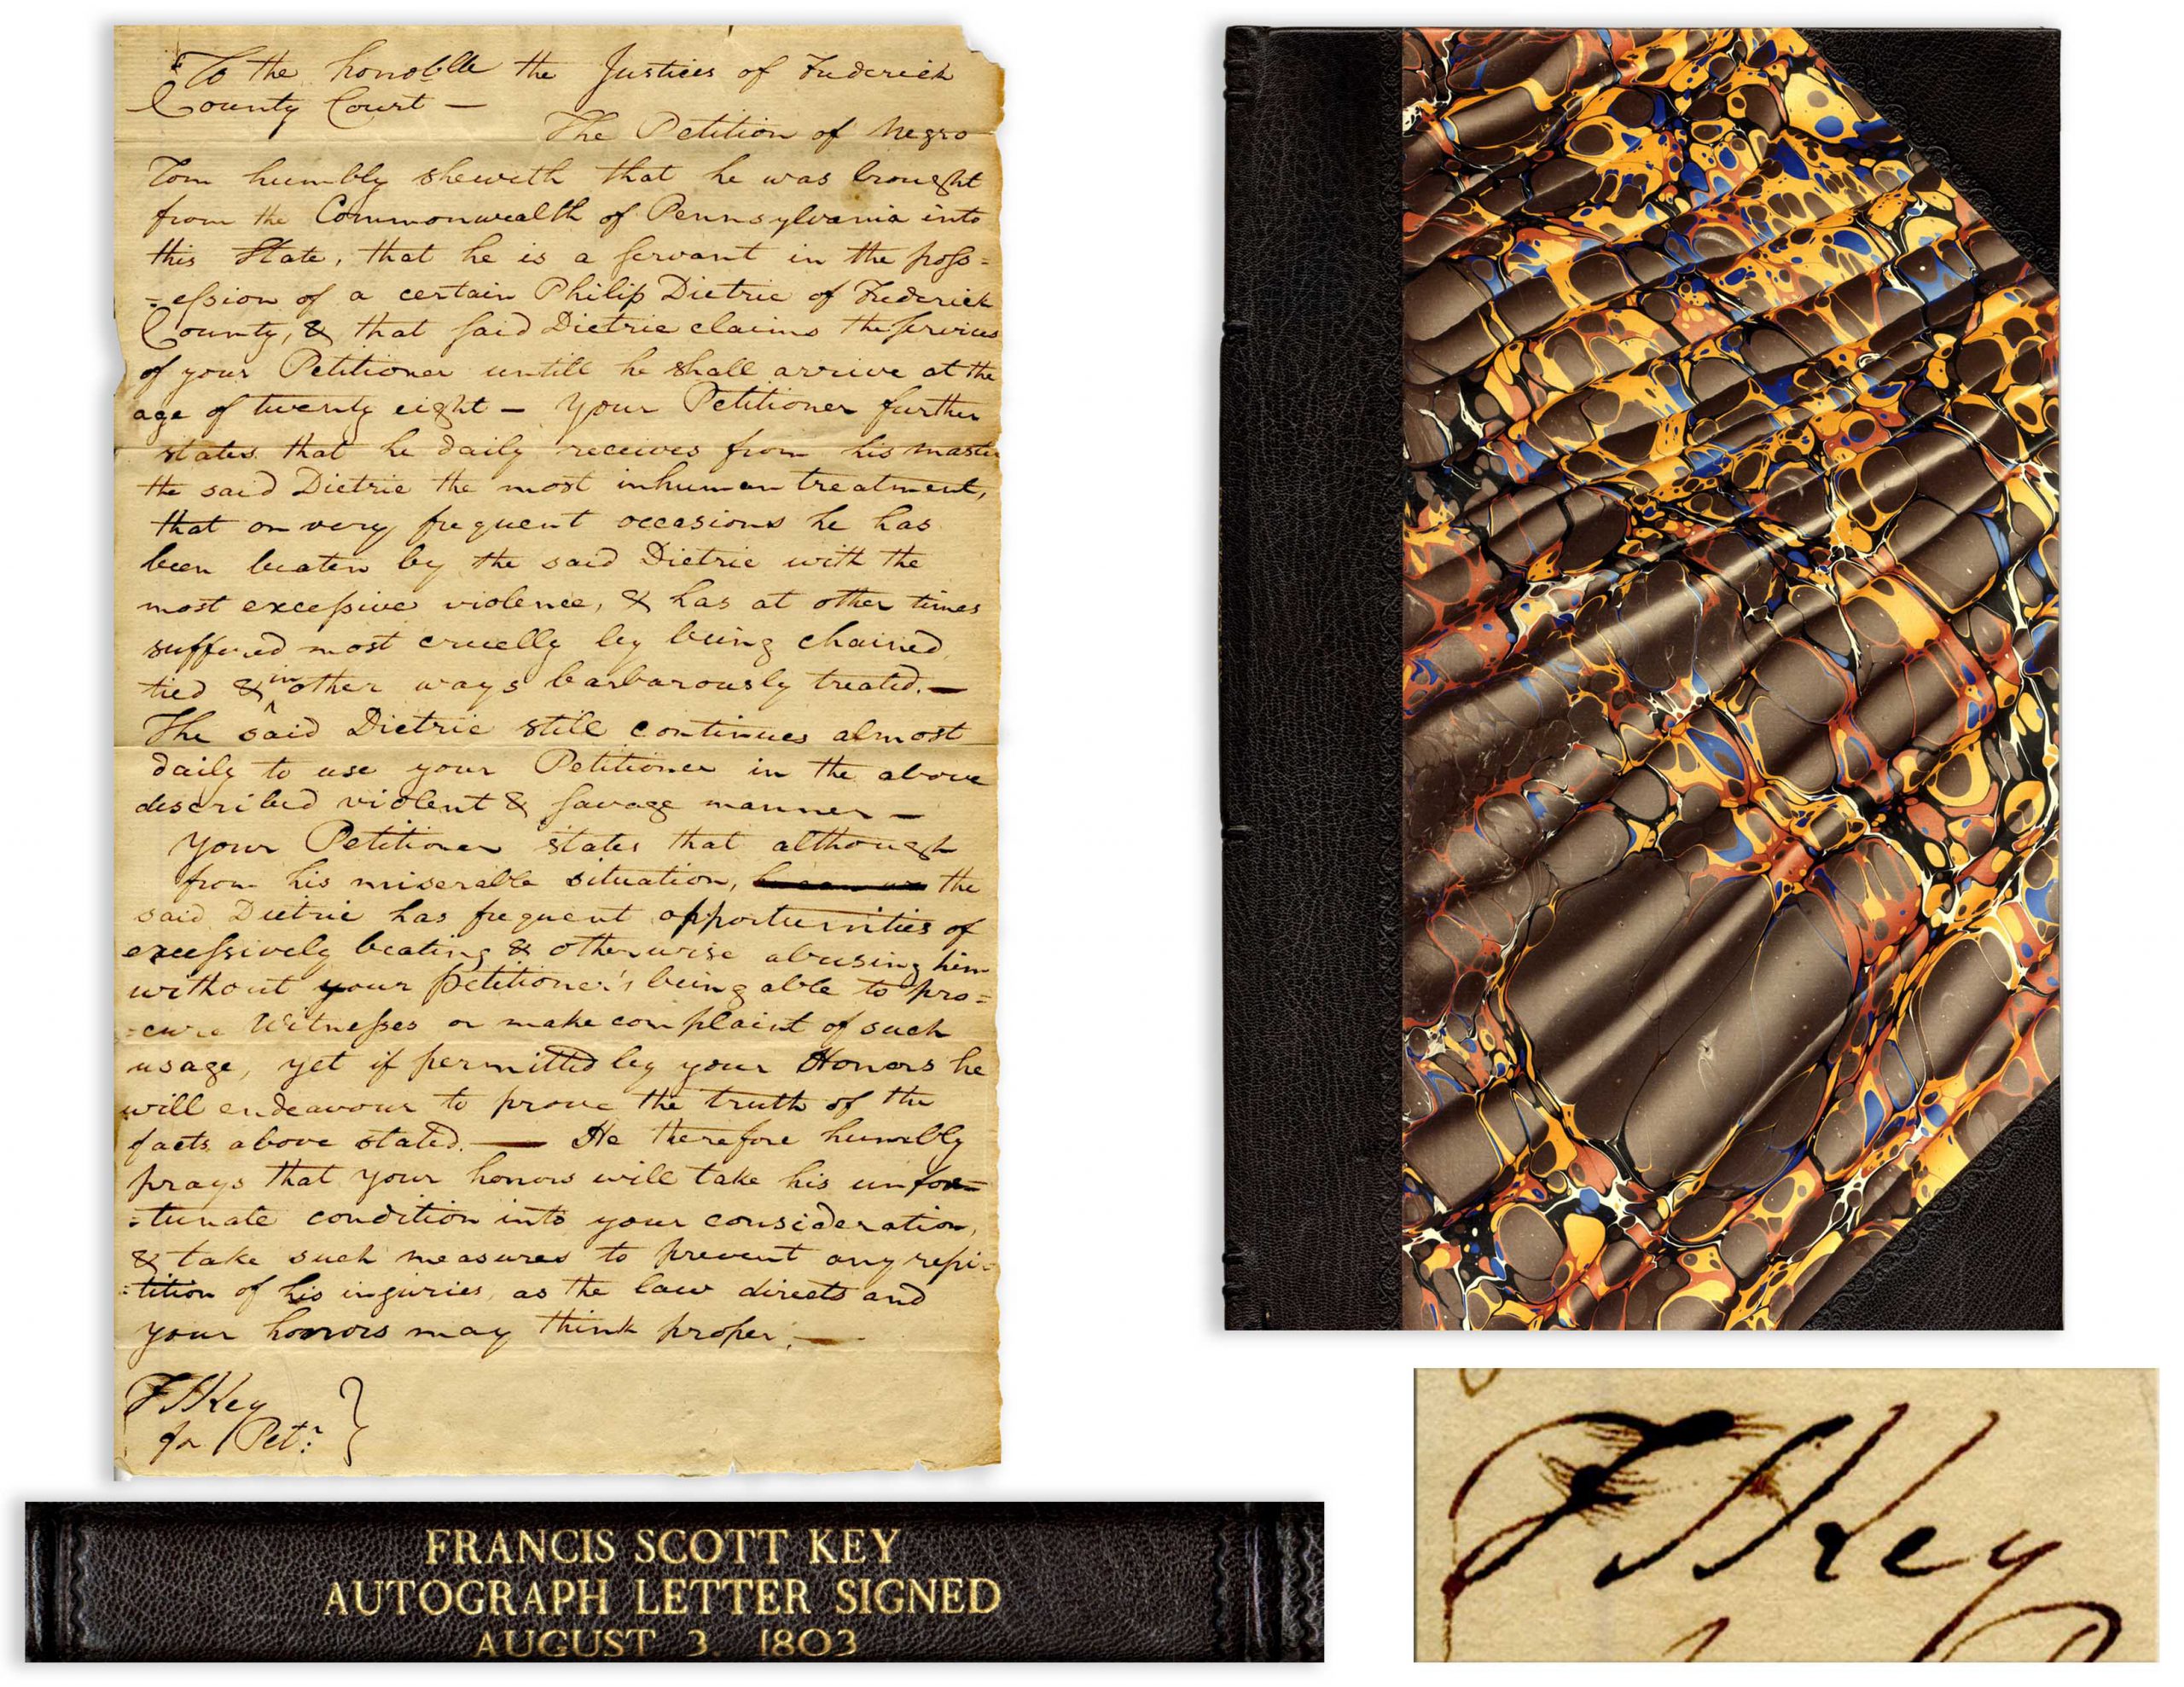 To the honoble the Justices of Frederick
County Court —
The Petition of Negro
Tom humbly sheweth that he was brought
from the Commonwealth of Pennsylvania into
this State, that he is a servant in the poss=
=ession of a certain Philip Dietric of Frederick
County, & that said Dietric claims the services
of your Petitioner untill he shall arrive at the
age of twenty eight — Your Petitioner further
states that he daily receives from his master
the said Dietric the most inhuman treatment,
that on very frequent occasions he has
been beaten by the said Dietric with the
most excessive violence, & has at other times
suffered most cruelly by being chained,
tied & in other ways barbarously treated. —
The said Dietric still continues almost
daily to use your Petitioner in the above
described violent & savage manner —
Your Petitioner states that although
from his miserable situation, the
said Dietric has frequent opportunities of
excessively beating & otherwise abusing him
without your petitioner's being able to pro=
=cure Witnesses or make complaint of such
usage, yet if permitted by your Honors he
will endeavour to prove the truth of the
facts above stated. — He therefore humbly
prays that your honors will take his unfor=
=tunate condition into your consideration,
& take such measures to prevent any repi=
=tition of his injuries, as the law directs and
your honors may think proper. —
F S Key
for Petr.
FRANCIS SCOTT KEY
AUTOGRAPH LETTER SIGNED
AUGUST 3, 1803
F S Key